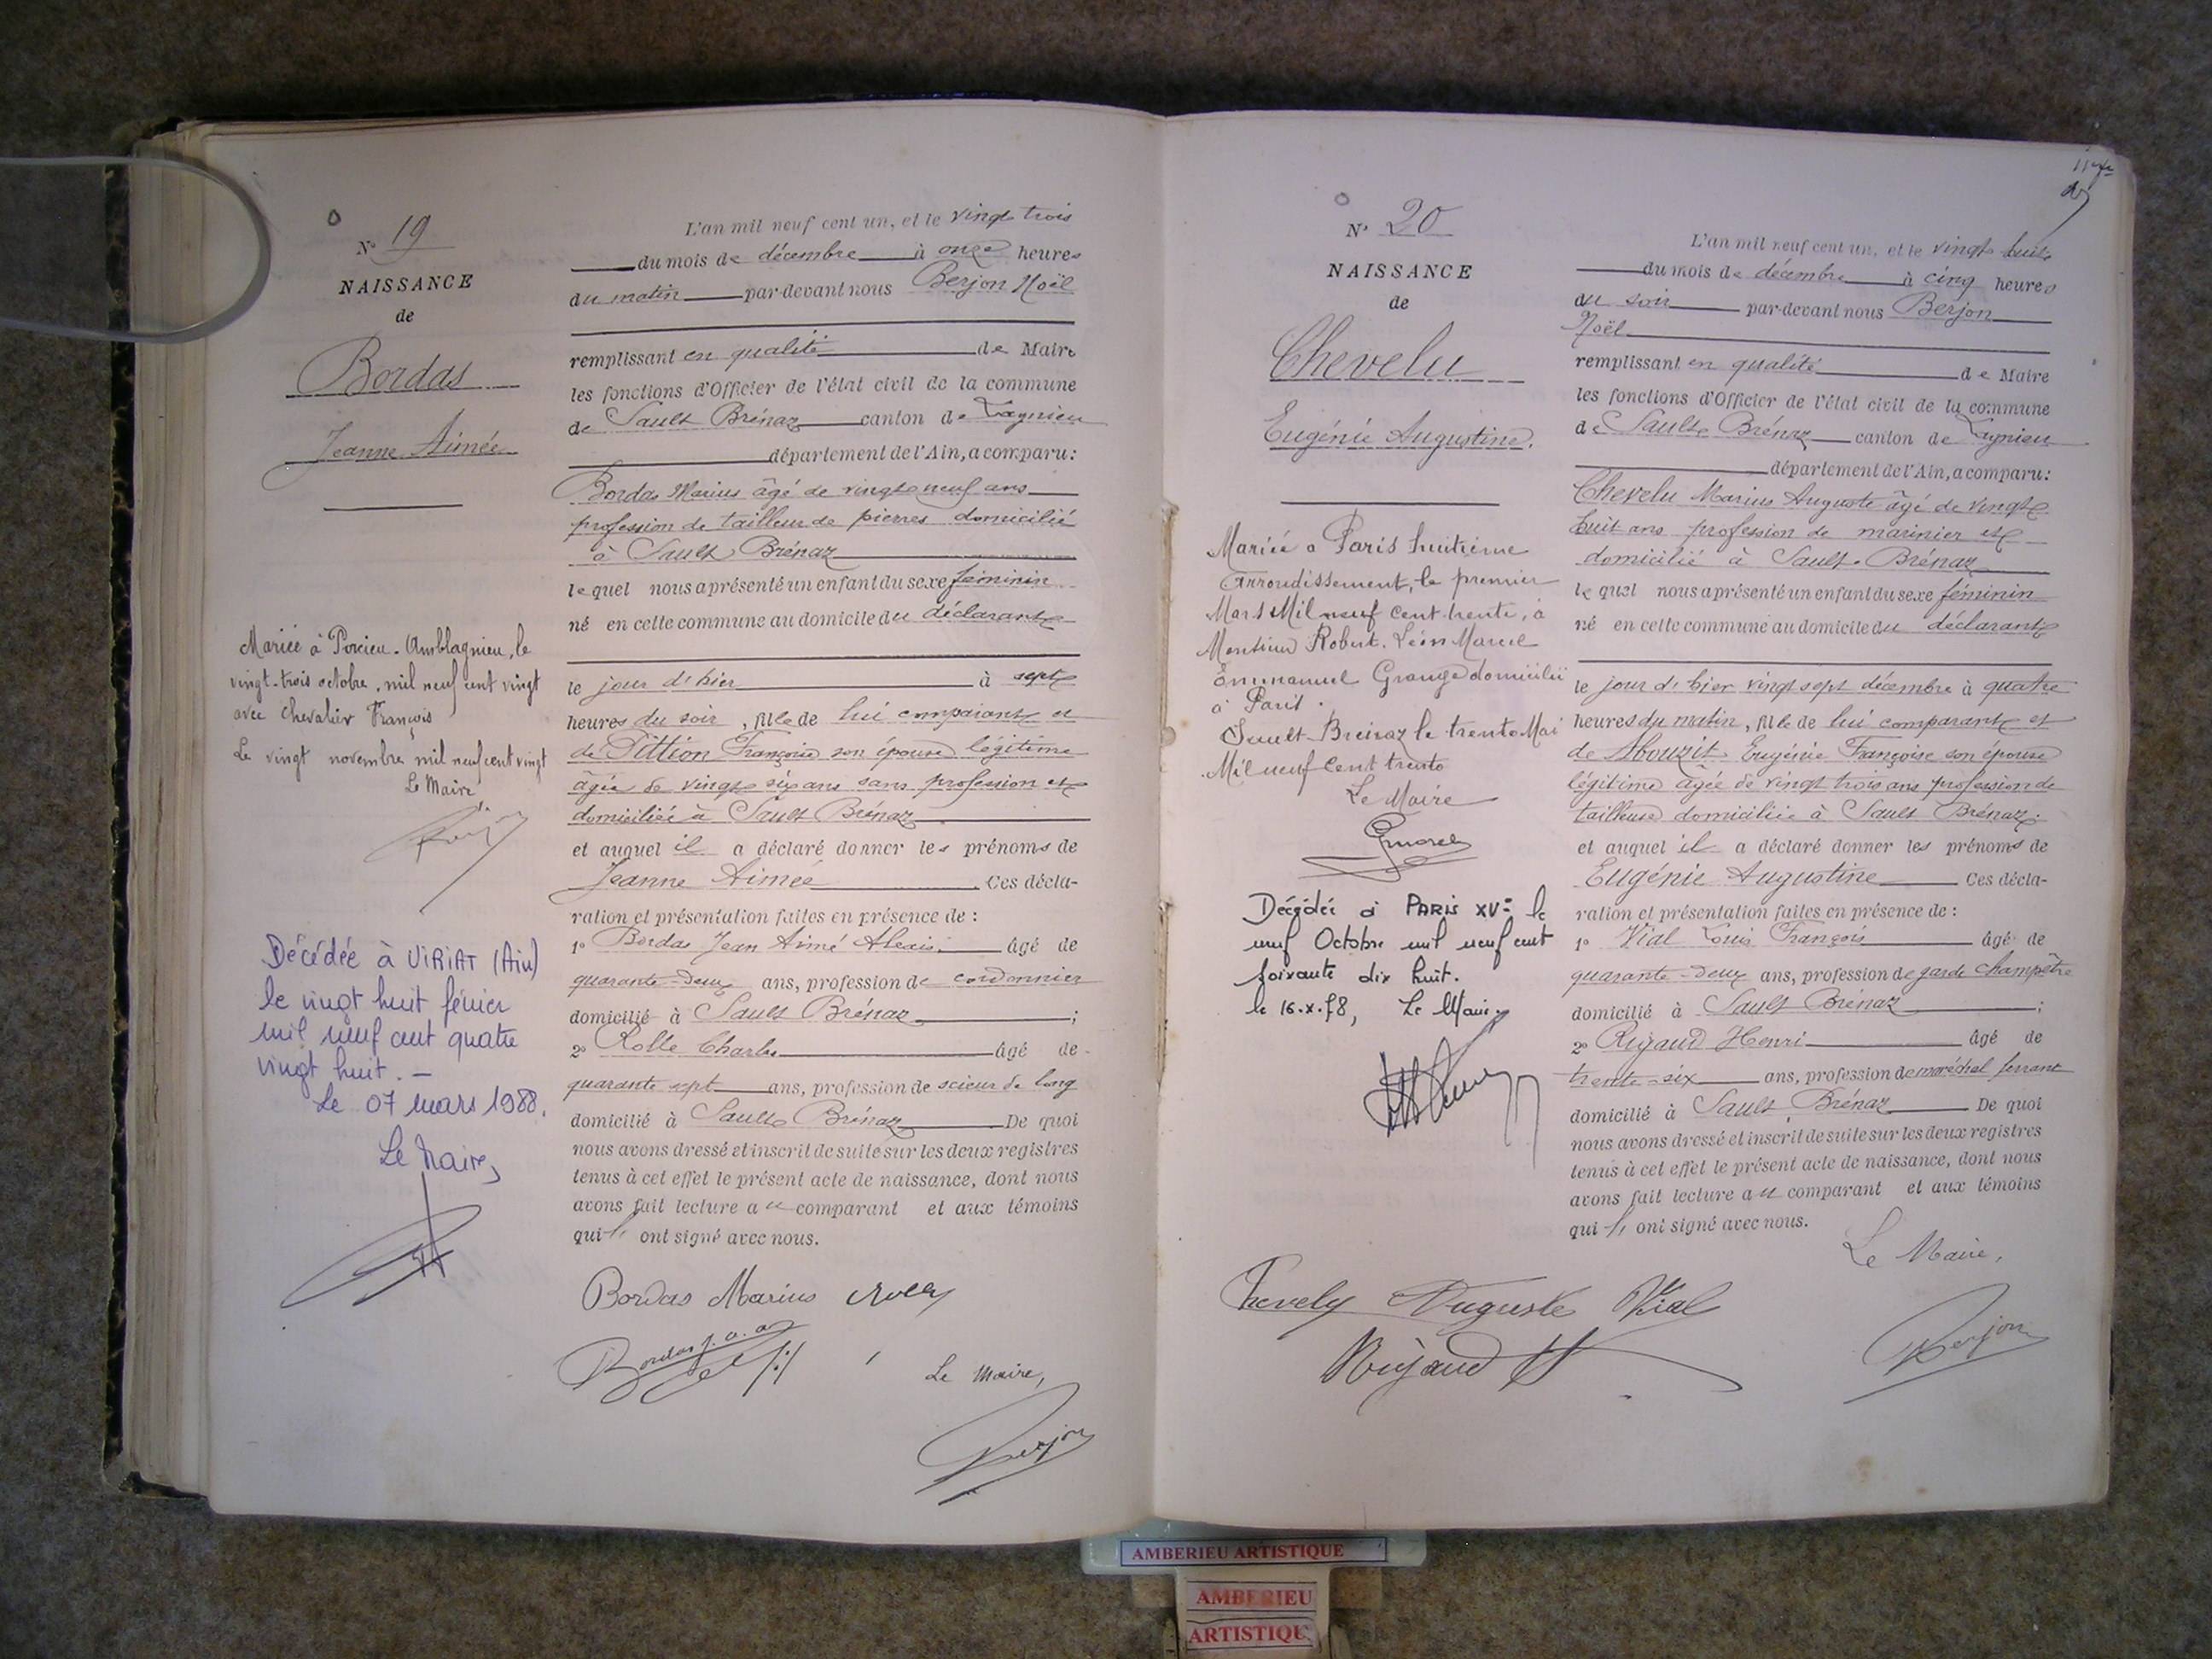 N° 19
NAISSANCE
de
Bordas
Jeanne Aimée
Mariée à Porcieu-Amblagnieu, le
vingt-trois octobre, mil neuf cent vingt
avec Chevalier François
Le vingt novembre mil neuf cent vingt
Le Maire
Décédée à VIRIAT (Ain)
le vingt huit février
mil neuf cent quatre
vingt huit. —
Le 07 mars 1988.
Le Maire,
L'an mil neuf cent un, et le vingt trois
du mois de décembre à onze heures
du matin par-devant nous Berjon Noël
remplissant en qualité de Maire
les fonctions d'Officier de l'état civil de la commune
de Sault Brénaz canton de Lagnieu
département de l'Ain, a comparu:
Bordas Marius âgé de vingt neuf ans
profession de tailleur de pierres domicilié
à Sault Brénaz
lequel nous a présenté un enfant du sexe féminin
né en cette commune au domicile du déclarant
le jour d'hier à sept
heures du soir, fille de lui comparant et
de Pittion Françoise son épouse légitime
âgée de vingt six ans sans profession et
domiciliée à Sault Brénaz
et auquel il a déclaré donner les prénoms de
Jeanne Aimée Ces décla-
ration et présentation faites en présence de :
1° Bordas Jean Aimé Alexis âgé de
quarante-deux ans, profession de cordonnier
domicilié à Sault Brénaz ;
2° Rolle Charles âgé de
quarante sept ans, profession de scieur de long
domicilié à Sault Brénaz De quoi
nous avons dressé et inscrit de suite sur les deux registres
tenus à cet effet le présent acte de naissance, dont nous
avons fait lecture au comparant et aux témoins
qui ont signé avec nous.
Bordas Marius
Bordas J. a. a
Le Maire,
Berjon
N° 20
NAISSANCE
de
Chevelu
Eugénie Augustine.
Mariée à Paris huitième
Arrondissement, le premier
Mars Mil neuf Cent trente, à
Monsieur Robert Léon Marcel
Emmanuel Grange domicilié
à Paris.
Sault-Brénaz le trente Mai
Mil neuf Cent trente
Le Maire
Décédée à PARIS XVe le
neuf Octobre mil neuf cent
soixante dix huit.
le 16.x.78, Le Maire,
L'an mil neuf cent un, et le vingt huit
du mois de décembre à cinq heures
du soir par-devant nous Berjon
Noël
remplissant en qualité de Maire
les fonctions d'Officier de l'état civil de la commune
de Sault Brénaz canton de Lagnieu
département de l'Ain, a comparu:
Chevelu Marius Auguste âgé de vingt
huit ans profession de marinier et
domicilié à Sault-Brénaz
lequel nous a présenté un enfant du sexe féminin
né en cette commune au domicile du déclarant
le jour d'hier vingt sept décembre à quatre
heures du matin, fille de lui comparant et
de Abouzit Eugénie Françoise son épouse
légitime âgée de vingt trois ans profession de
tailleuse domiciliée à Sault Brénaz.
et auquel il a déclaré donner les prénoms de
Eugénie Augustine Ces décla-
ration et présentation faites en présence de :
1° Vial Louis François âgé de
quarante-deux ans, profession de garde champêtre
domicilié à Sault Brénaz ;
2° Rigaud Henri âgé de
trente-six ans, profession de maréchal ferrant
domicilié à Sault Brénaz De quoi
nous avons dressé et inscrit de suite sur les deux registres
tenus à cet effet le présent acte de naissance, dont nous
avons fait lecture au comparant et aux témoins
qui ont signé avec nous.
Le Maire,
Chevelu Auguste Vial
Rigaud H
Berjon
AMBERIEU ARTISTIQUE
AMBERIEU
ARTISTIQU